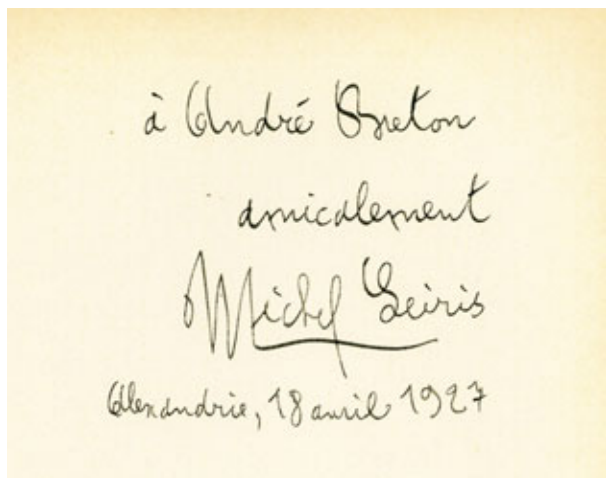 à André Breton
amicalement
Michel Leiris
Alexandrie, 18 avril 1927